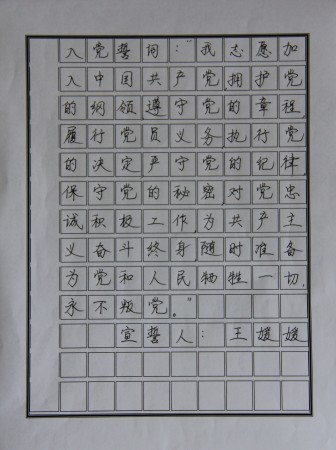 入党誓词："我志愿加
入中国共产党拥护党
的纲领,遵守党的章程,
履行党员义务,执行党
的决定,严守党的纪律,
保守党的秘密对党忠
诚积极工作,为共产主
义奋斗终身,随时准备
为党和人民牺牲一切,
永不叛党。"
宣誓人：王媛媛